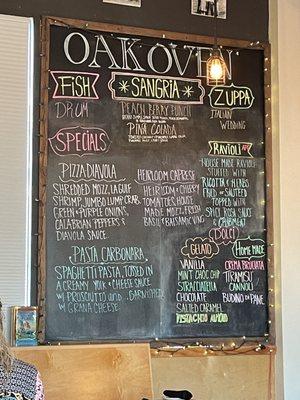 OAK OVEN
FISH
DRUM
SANGRIA
PEACH BERRY PUNCH
PINA COLADA
ZUPPA
ITALIAN
WEDDING
SPECIALS
PIZZA DIAVOLA
SHREDDED MOZZ, LA GULF
SHRIMP, JUMBO LUMP CRAB,
GREEN & PURPLE ONIONS,
CALABRIAN PEPPERS, &
DIAVOLA SAUCE
HEIRLOOM CAPRESE
HEIRLOOM & CHERRY
TOMATOES, HOUSE
MADE MOZZ, FRESH
BASIL & BALSAMIC
RAVIOLI
HOUSE MADE RAVIOLI
STUFFED WITH
RICOTTA & HERBS,
FRIED OR SAUTEED
TOPPED WITH
SPICY ROSA SAUCE
PASTA CARBONARA
SPAGHETTI PASTA, TOSSED IN
A CREAMY YOLK & CHEESE SAUCE
W/ PROSCIUTTO AND GARNISHED
W/ GRANA CHEESE
DOLCI
GELATO
VANILLA
MINT CHOC CHIP
STRACCIATELLA
CHOCOLATE
SALTED CARAMEL
PISTACHIO ALMOND
HOME MADE
CREMA BRUCIATA
TIRAMISU
CANNOLI
BUDINO DI PANE